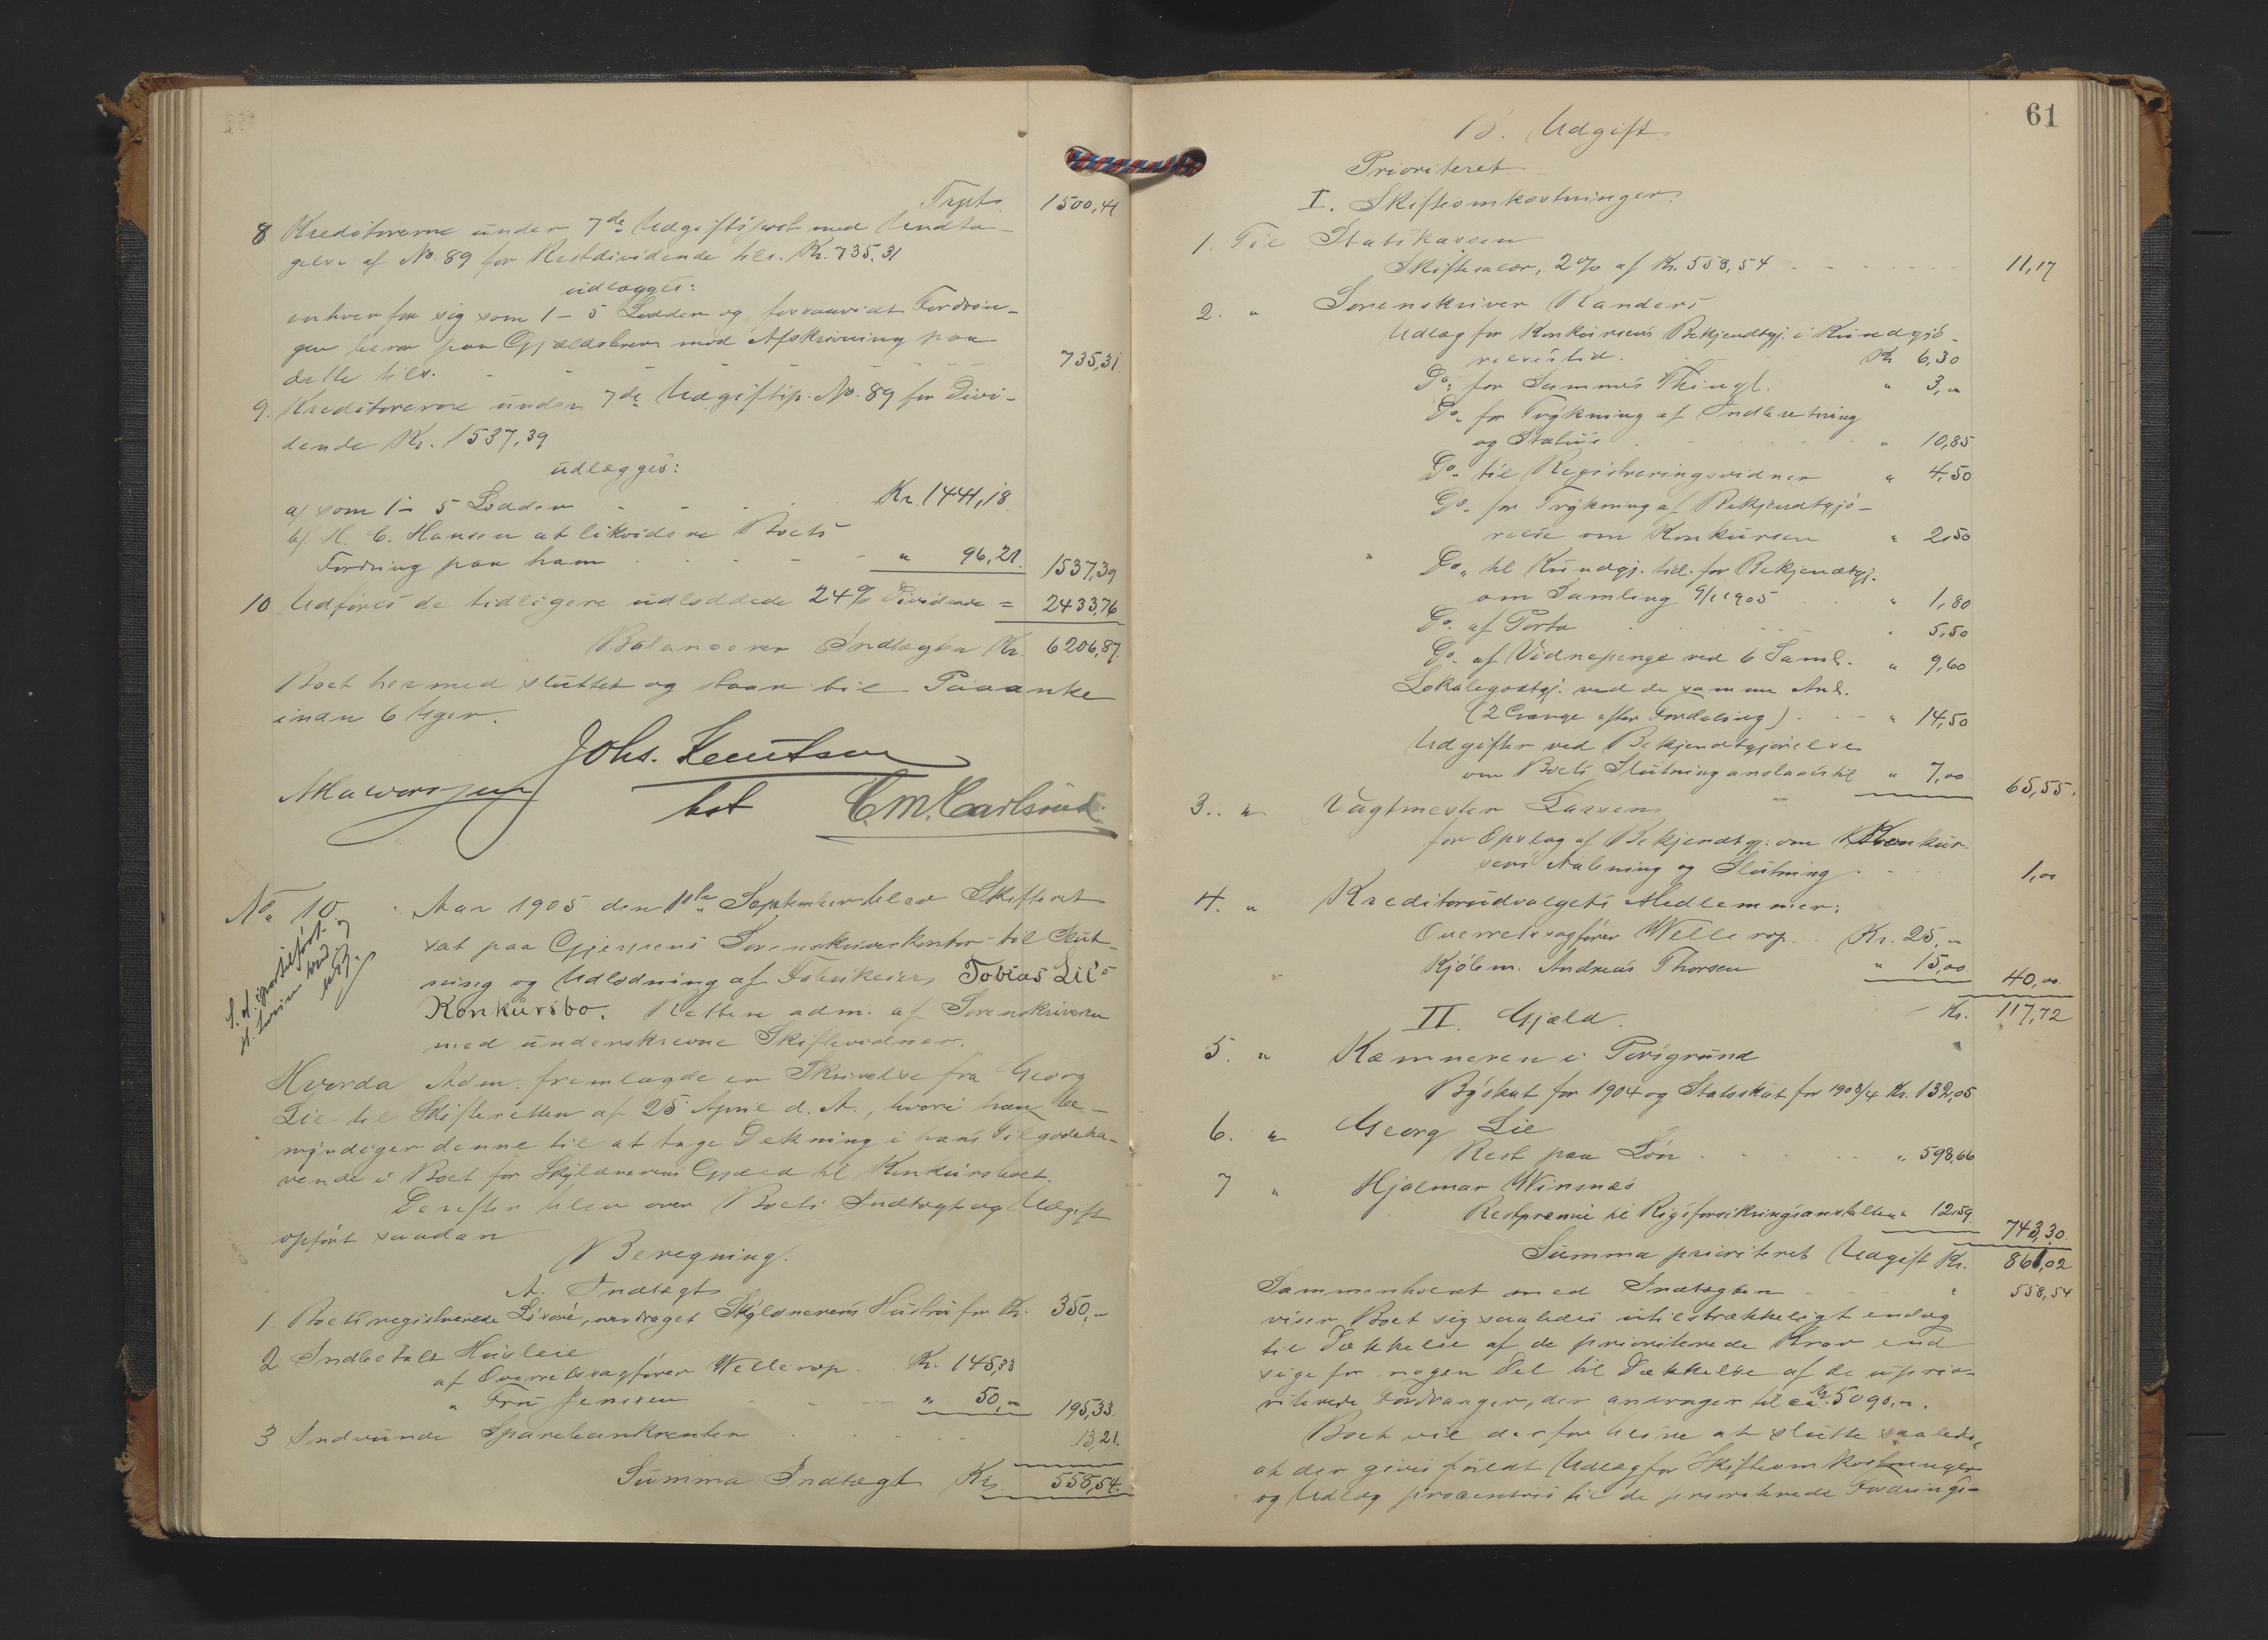 Trspt. 1500,41
8 Kreditorerne under 7de Udgiftspost med Undta-
gelse af No. 89 for Restdividende tils. Kr. 735,31
udlægges:
enhver for sig som 1 - 5 Lodder og forsaavidt Fordrin-
gen bæres paa Gjældsbrev mod Afskrivning paa
dette tils. 735,31
9. Kreditorerne under 7de Udgiftsp. No. 89 for Divi-
dende Kr. 1537,39
udlægges:
a) som 1 - 5 Lodder Kr. 1441,18
b) H. C. Hansen at likvidere Boets
Fordring paa ham " 96,21. 1537,39
10 Udføres de tidligere udloddede 24% Dividende = 2433,76
Balancerer Indtægten Kr. 6206,87.
Boet hermed sluttet og staar til Paaanke
inden 6 Uger.
Johs. Knutsen
kst C.M. Carlsrud.
No. 10. Aar 1905 den 11te September blev Skifteret
sat paa Gjerpens Sorenskriverkontor til Slut-
ning og Udlodning af Fabrikeier Tobias Lie's
Konkursbo. Retten adm. af Sorenskriveren
med underskrevne Skiftevidner.
Hvorda Adm. fremlagde en Skrivelse fra Georg
Lie til Skifteretten af 25 April d. A., hvori han be-
myndiger denne til at tage Dekning i hans Tilgodeha-
vende i Boet for Skyldnerens Gjæld til Konkursboet.
Derefter blev over Boets Indtægt og Udgift
opført saadan
Beregning.
A. Indtægt
1. Boets registrerede Løsøre, overdraget Skyldnerens Hustru for Kr. 350,"
2 Indbetalt Husleie
af Overretssagfører Wellerop Kr. 145,33
" Fru Jensen " 50,00 195,33.
3 Indvundne Sparebankrenter 13,21.
Summa Indtægt Kr. 558,54.
61
B. Udgift.
Prioriteret
I. Skifteomkostninger.
1. Til Statskassen
Skiftesalær, 2% af Kr. 558,54 11,17
2. " Sorenskriver Randers
Udlæg for Konkursens Bekjendtgj. i Kundgjø-
relsestid. Kr 6,30
Do. for Sammes Thingl. " 3,"
Do. for Trykning af Indberetning
og Status " 10,85
Do. til Registreringsvidner " 4,50
Do. for Trykning af Bekjendtgjø-
relse om Konkursen " 2,50
Do. til Kundgj. tid. for Bekjendtgj.
om Samling 9/1 1905 " 1,80
Do. af Porto " 5,50
Do. af Vidnepenge ved 6 Saml. " 9,60
Lokalegodtgj. ved de samme Anl.
(2 Gange efter Fordeling) " 14,50
Udgifter ved Bekjendtgjørelse
om Boets Slutning anslaaes til " 7,00 65,55.
3. " Vagtmester Larsen
for Opslag af Bekjendtgj. om Konkur-
sens Aabning og Slutning 1,00
4. " Kreditorudvalgets Medlemmer:
Overretssagfører Wellerop Kr. 25,"
Kjøbm. Andreas Thorsen " 15,00 40,00.
Kr. 117,72
II. Gjæld.
5. " Kæmneren i Porsgrund
Byskat for 1904 og Statsskat for 1903/4 Kr. 132,05
6. " Georg Lie
Rest paa Løn " 598,66
7 " Hjalmar Winsnes
Restpremie til Rigsforsikringsanstalten " 12,59 743,30.
Summa prioriteret Udgift Kr. 861,02
Sammenholdt med Indtægten " 558,54
viser Boet sig saaledes utilstrækkeligt endog
til Dækkelse af de prioriterede Krav end
sige for nogen Del til Dækkelse af de uprio-
riterede Fordringer, der andrager til ca. Kr. 5090,".
Boet vil derfor blive at slutte saaledes,
at der gives fuldt Udlæg for Skifteomkostninger
og Udlæg procentvis til de prioriterede Fordrings-